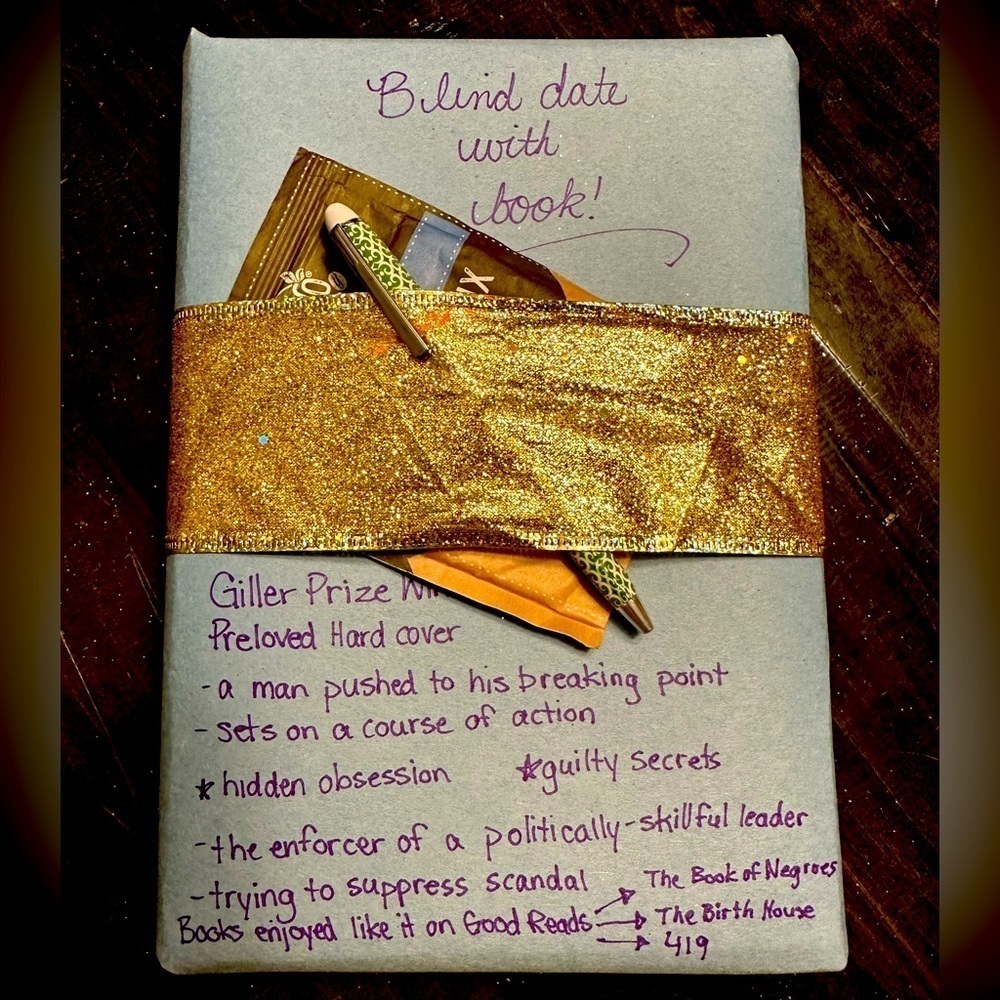 Blind date
with
book!
Giller Prize
Preloved Hard cover
- a man pushed to his breaking point
- sets on a course of action
* hidden obsession * guilty secrets
- the enforcer of a politically-skillful leader
- trying to suppress scandal
Books enjoyed like it on Good Reads → The Book of Negroes
→ The Birth House
→ 419